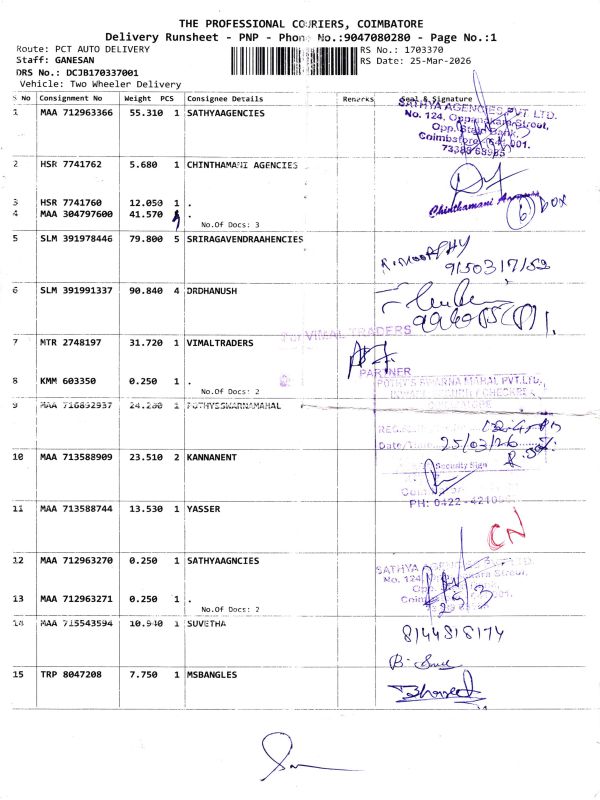 THE PROFESSIONAL COURIERS, COIMBATORE
Delivery Runsheet - PNP - Phone No.:9047080280 - Page No.:1
Route: PCT AUTO DELIVERY
RS No.: 1703370
Staff: GANESAN
RS Date: 25-Mar-2026
DRS No.: DCJB170337001
Vehicle: Two Wheeler Delivery
S No Consignment No Weight PCS Consignee Details Remarks Seal & Signature
1 MAA 712963366 55.310 1 SATHYAAGENCIES
SATHYA AGENCIES PVT. LTD.
No. 124, Oppanakara Street,
Opp. Stain Bank,
Coimbatore - 641 001.
2 HSR 7741762 5.680 1 CHINTHAMANI AGENCIES
3 HSR 7741760 12.050 1 .
Chinthamani Agencies
4 MAA 304797600 41.570 1 .
6 box
No.Of Docs: 3
5 SLM 391978446 79.800 5 SRIRAGAVENDRAAHENCIES
R. MOORTHY
9150317152
6 SLM 391991337 90.840 4 DRDHANUSH
For VIMAL TRADERS
7 MTR 2748197 31.720 1 VIMALTRADERS
PARTNER
8 KMM 603350 0.250 1 .
POTHYS SWARNA MAHAL PVT.LTD.
No.Of Docs: 2
9 MAA 716892937 24.280 1 POTHYSSWARNAMAHAL
Date/Time 25/03/26
10 MAA 713588909 23.510 2 KANNANENT
Security Sign
PH: 0422-
11 MAA 713588744 13.530 1 YASSER
CN
12 MAA 712963270 0.250 1 SATHYAAGNCIES
SATHYA
No. 124,
13 MAA 712963271 0.250 1 .
No.Of Docs: 2
14 MAA 715543594 10.940 1 SUVETHA
8144818174
15 TRP 8047208 7.750 1 MSBANGLES